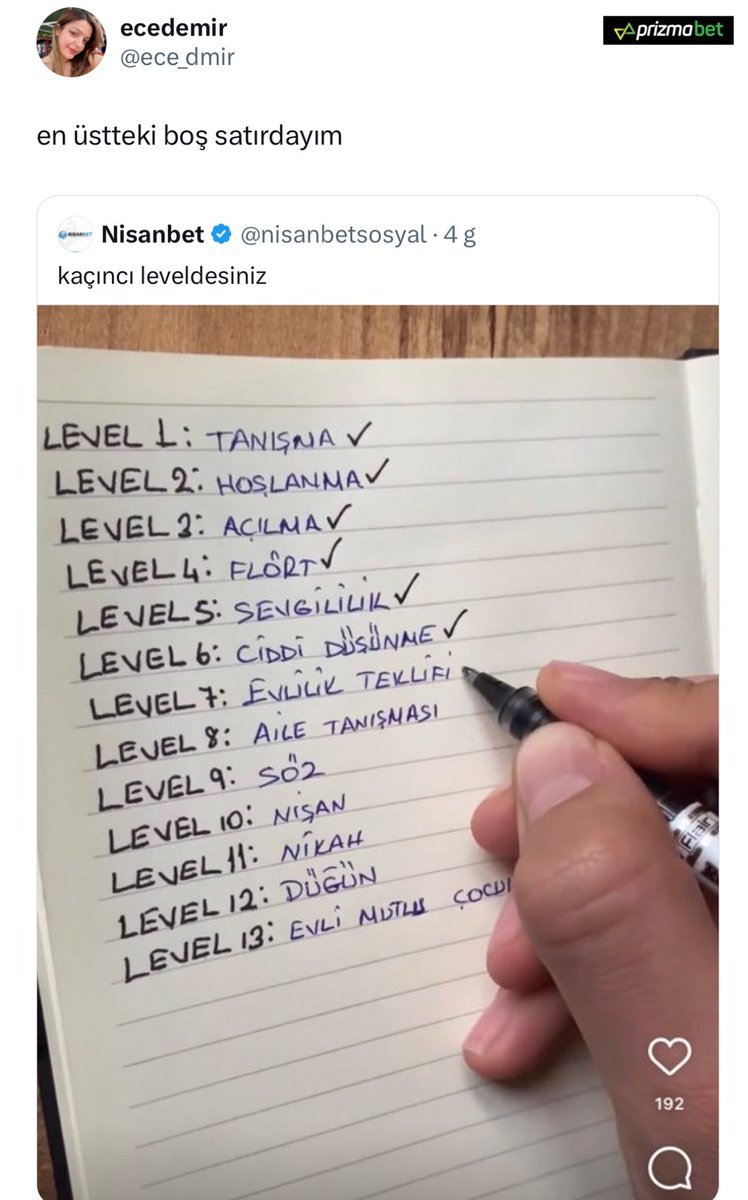 ecedemir
@ece_dmir
prizmabet
en üstteki boş satırdayım
NISANBET
Nisanbet @nisanbetsosyal · 4 g
kaçıncı leveldesiniz
LEVEL 1: TANIŞMA ✓
LEVEL 2: HOŞLANMA ✓
LEVEL 3: AÇILMA ✓
LEVEL 4: FLÖRT ✓
LEVEL 5: SEVGİLİLİK ✓
LEVEL 6: CİDDİ DÜŞÜNME ✓
LEVEL 7: EVLİLİK TEKLİFİ
LEVEL 8: AİLE TANIŞMASI
LEVEL 9: SÖZ
LEVEL 10: NİŞAN
LEVEL 11: NİKAH
LEVEL 12: DÜĞÜN
LEVEL 13: EVLİ MUTLU ÇOCU
192